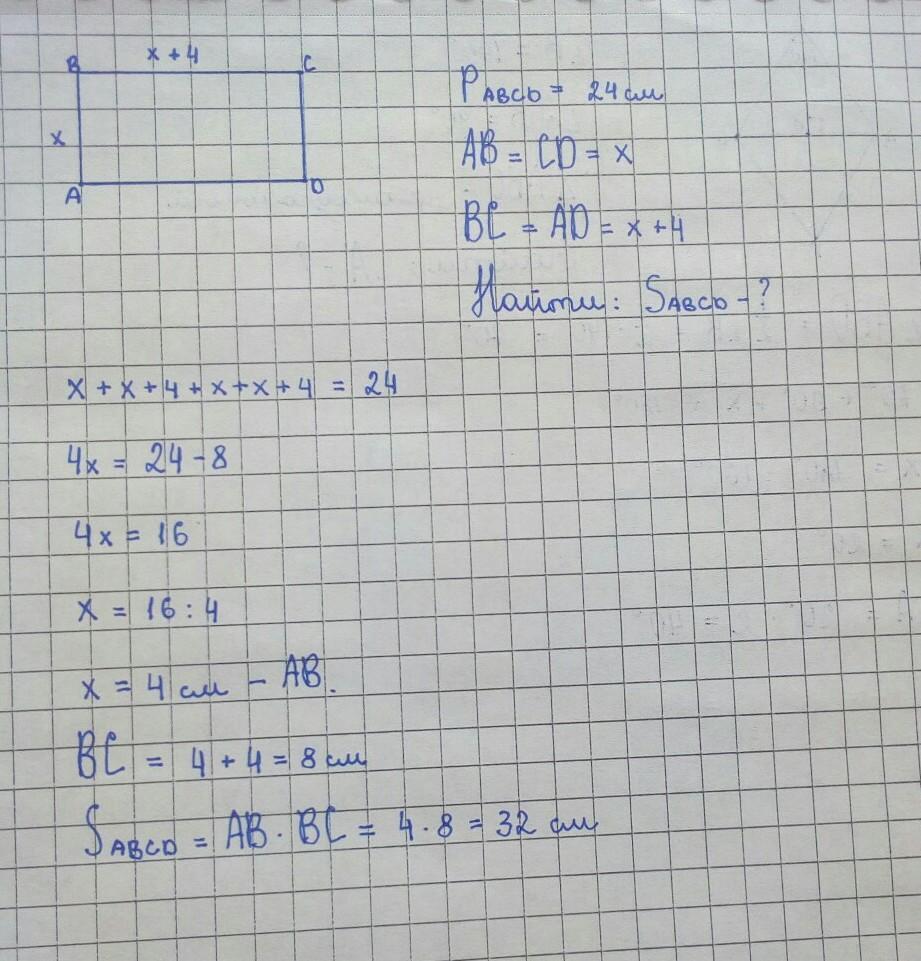 B x + 4 C
x
A D
P ABCD = 24 см
AB = CD = x
BC = AD = x + 4
Найти: S ABCD - ?
x + x + 4 + x + x + 4 = 24
4x = 24 - 8
4x = 16
x = 16 : 4
x = 4 см - AB.
BC = 4 + 4 = 8 см
S ABCD = AB · BC = 4 · 8 = 32 см